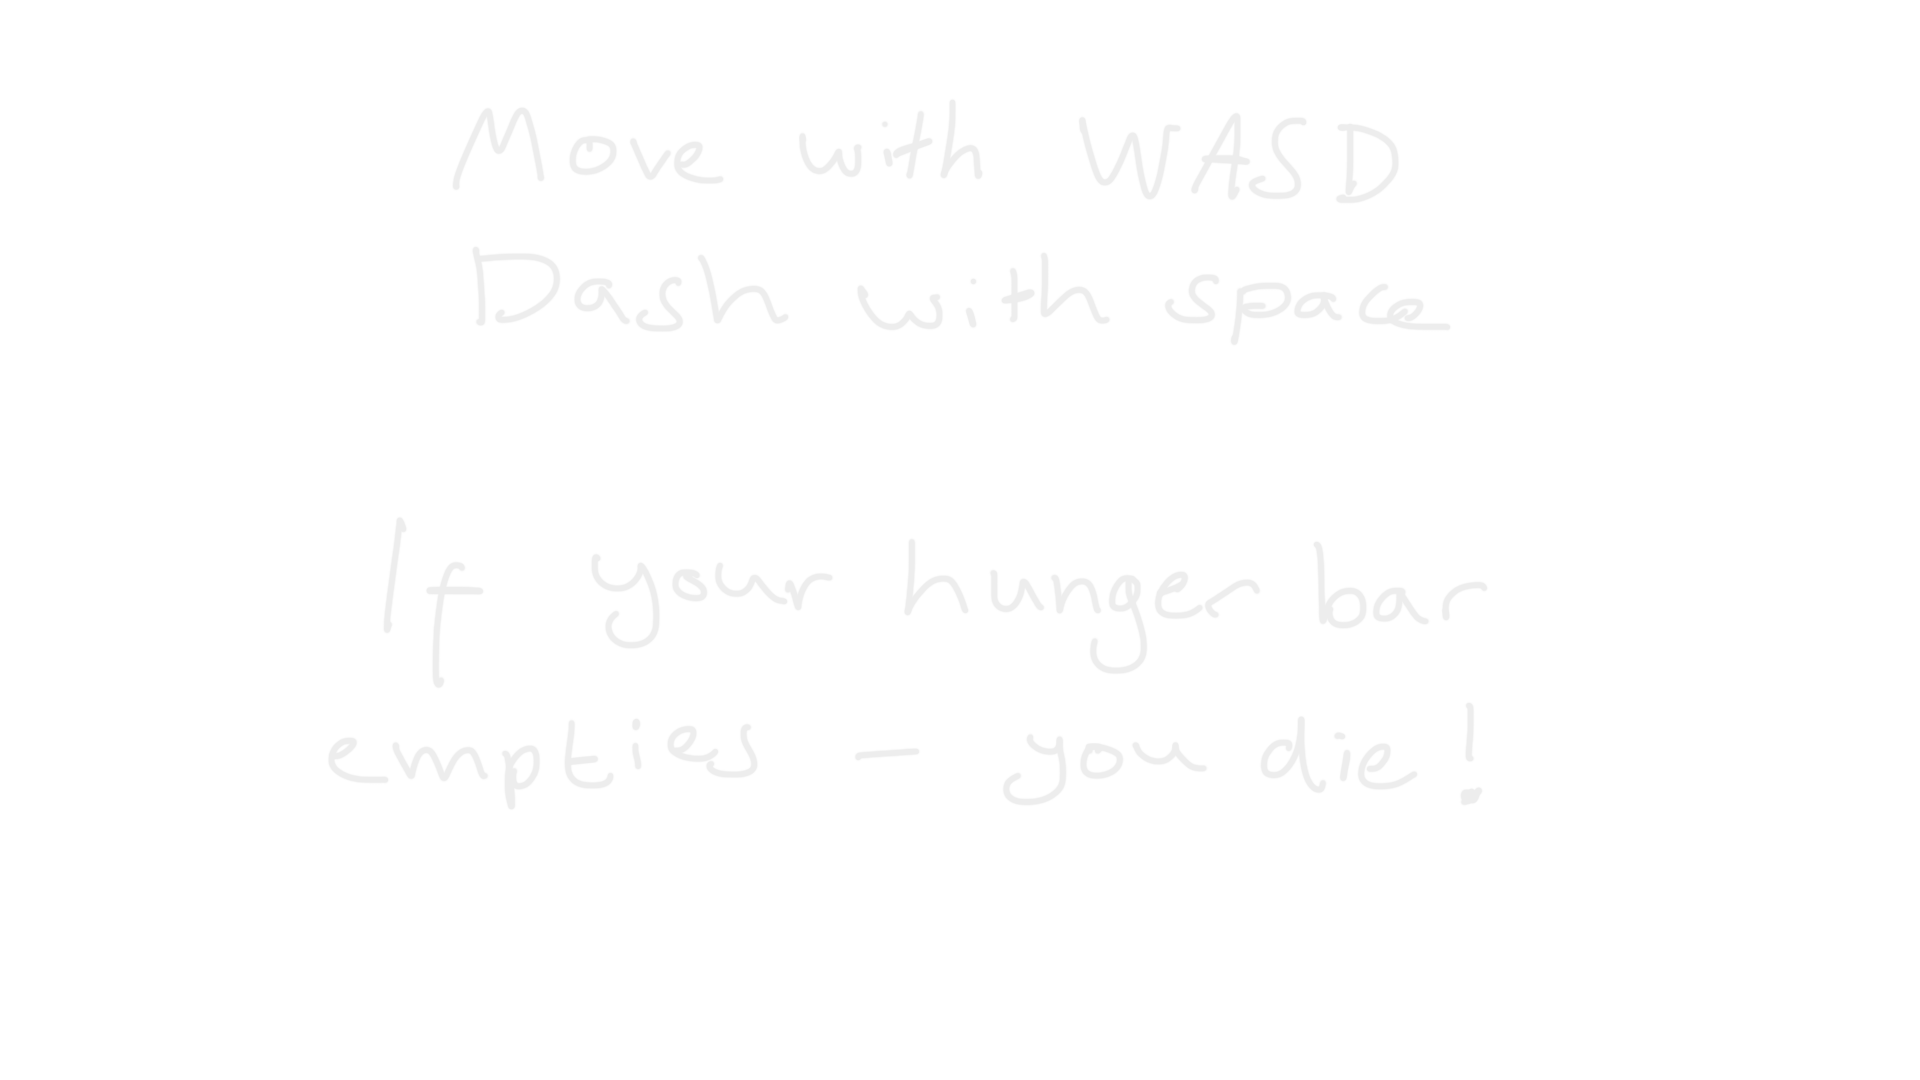 Move with WASD
Dash with space
If your hunger bar
empties - you die!